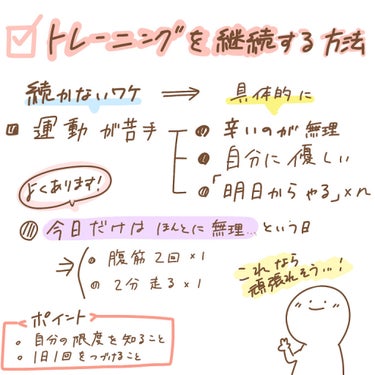 トレーニングを継続する方法
続かないワケ ⇒ 具体的に
運動が苦手
辛いのが無理
自分に優しい
「明日からやる」×n
よくあります!
今日だけはほんとに無理... という日
⇒ 腹筋2回×1
2分走る×1
これなら
頑張れそう…!
ポイント
自分の限度を知ること
1日1回をつづけること